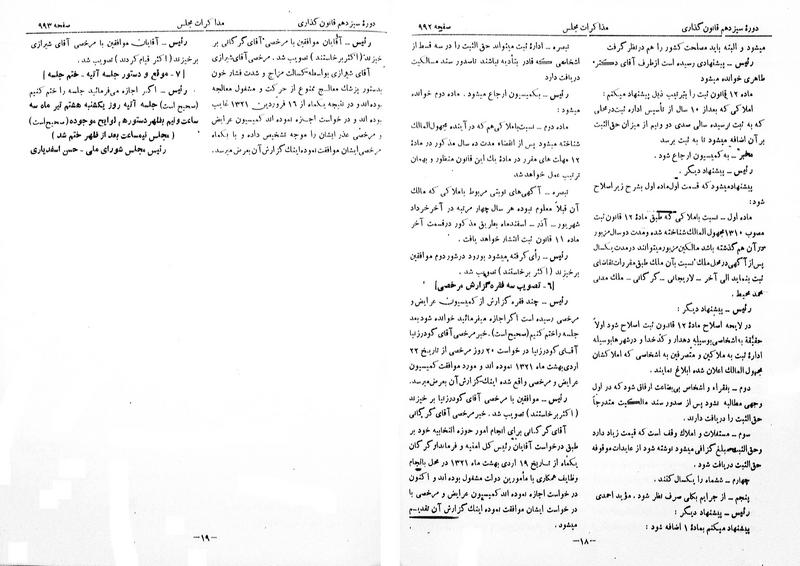 دورهٔ سیزدهم قانون گذاری
مذاکرات مجلس
صفحه ۹۹۲
میشود و البته باید مصلحت کشور را هم در نظر گرفت
رئیس ــ پیشنهادی رسیده است از طرف آقای دکتر
طاهری خوانده میشود
ماده ۱۲ قانون ثبت را بترتیب ذیل پیشنهاد میکنم:
املاکی که بعد از ۱۰ سال از تأسیس اداره ثبت در محلی
که به ثبت نرسیده سالی صدی دو ونیم از میزان حق الثبت
بر آن اضافه میشود تا به ثبت برسد
مخبر ــ به کمیسیون ارجاع شود.
رئیس ــ پیشنهاد دیگر.
پیشنهاد میشود که قسمت اول ماده اول بشرح زیر اصلاح
شود:
ماده اول ــ نسبت باملاکی که طبق مادهٔ ۱۲ قانون ثبت
مصوب ۱۳۱۰ مجهول المالک شناخته شده و مدت دو سال مزبور
در آن هم گذشته باشد مالکین مزبور میتوانند در مدت یکسال
پس از آگهی در محل ملک نسبت بآن ملک طبق مقررات تقاضای
ثبت بنماید الی آخر ــ لاریجانی ــ گرگانی ــ ملک مدنی
محمد محیط.
رئیس ــ پیشنهاد دیگر:
در لایحه اصلاح مادهٔ ۱۲ قانون ثبت اصلاح شود اولاً
حقیقة به اشخاصی بوسیله دهدار و کدخدا و در شهرها بوسیله
ادارهٔ ثبت به ملاکین و متصرفین به اشخاصی که املاکشان
مجهول المالک اعلان شده ابلاغ نمایند.
دوم ــ بفقراء و اشخاص بی بضاعت ارفاق شود که در اول
وجهی مطالبه نشود پس از صدور سند مالکیت متدرجاً
حق الثبت را دریافت دارند.
سوم ــ مستغلات و املاک وقف است که قیمت زیاد دارد
و حق الثبت مبلغ گزافی میشود نوشته شود از عایدات موقوفه
دریافت شود.
چهارم ــ ششماه را یکسال کنند.
پنجم ــ از جرایم بکلی صرف نظر شود. مؤید احمدی
رئیس ــ پیشنهاد دیگر:
پیشنهاد میکنم بمادهٔ ۱ اضافه شود:
تبصره ــ ادارهٔ ثبت میتواند حق الثبت را در سه قسط از
اشخاصی که قادر بتأدیه نباشند تا صدور سند مالکیت
دریافت دارد
رئیس ــ بکمیسیون ارجاع میشود. ماده دوم خوانده
میشود:
ماده دوم ــ نسبت باملاکی هم که در آینده مجهول المالک
شناخته میشود پس از انقضاء مدت ده سال مذکور در مادهٔ
۱۲ مهلت های مقرر در مادهٔ یک این قانون منظور و بهمان
ترتیب عمل خواهد شد
تبصره ــ آگهی های نوبتی مربوط باملاکی که مالک
آن قبلاً معلوم نبوده هر سال چهار مرتبه در آخر خرداد
شهریور ــ آذر ــ اسفند ماه بطریق مذکور در قسمت آخر
ماده ۱۱ قانون ثبت انتشار خواهد یافت.
رئیس ــ رأی گرفته میشود بورود در شور دوم موافقین
برخیزند (اکثر برخاستند) تصویب شد.
[۶ - تصویب سه فقره گزارش مرخصی]
رئیس ــ چند فقره گزارش از کمیسیون عرایض و
مرخصی رسیده است اگر اجازه میفرمائید خوانده شود بعد
جلسه را ختم کنیم (صحیح است). خبر مرخصی آقای گودرزنیا
آقای گودرزنیا درخواست ۲۰ روز مرخصی از تاریخ ۲۲
اردی بهشت ماه ۱۳۲۱ نموده اند و مورد موافقت کمیسیون
عرایض و مرخصی واقع شده اینک گزارش آن بعرض میرسد.
رئیس ــ موافقین با مرخصی آقای گودرزنیا بر خیزند
(اکثر برخاستند) تصویب شد. خبر مرخصی آقای گرگانی
آقای گرگانی برای انجام امور حوزه انتخابیه خود بر
طبق درخواست آقایان رئیس کل امنیه و فرماندار گرگان
یکماه از تاریخ ۱۹ اردی بهشت ماه ۱۳۲۱ در محل بانجام
وظایف همکاری با مأمورین دولت مشغول بوده اند و اکنون
درخواست اجازه نموده اند کمیسیون عرایض و مرخصی با
درخواست ایشان موافقت نموده اینک گزارش آن تقدیم
میشود.
ــ۱۸ــ
دورهٔ سیزدهم قانون گذاری
مذاکرات مجلس
صفحه ۹۹۳
رئیس ــ آقایان موافقین با مرخصی آقای گرگانی بر
خیزند (اکثر برخاستند) تصویب شد. خبر مرخصی آقای شیرازی
آقای شیرازی بواسطه کسالت مزاج و شدت فشار خون
بدستور پزشک معالج ممنوع از حرکت و مشغول معالجه
بوده اند و در نتیجه یکماه از ۱۲ فروردین ۱۳۲۱ غایب
بوده اند و درخواست اجازه نموده اند کمیسیون عرایض
و مرخصی عذر ایشان را موجه تشخیص داده و با یکماه
مرخصی ایشان موافقت نموده اینک گزارش آن بعرض میرسد.
رئیس ــ آقایان موافقین با مرخصی آقای شیرازی
برخیزند (اکثر قیام کردند) تصویب شد.
[۷ - موقع و دستور جلسه آتیه - ختم جلسه]
رئیس ــ اگر اجازه میفرمائید جلسه را ختم کنیم
(صحیح است) جلسه آتیه روز یکشنبه هشتم تیر ماه سه
ساعت ونیم بظهر دستور هم لوایح موجوده (صحیح است)
(مجلس نیمساعت بعد از ظهر ختم شد)
رئیس مجلس شورای ملی - حسن اسفندیاری
ــ۱۹ــ